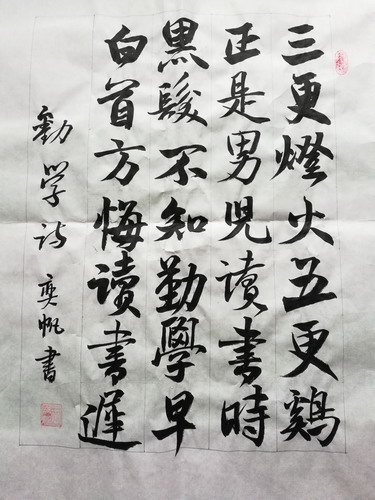 三更燈火五更鷄
正是男兒讀書時
黑髮不知勤學早
白首方悔讀書遲
勸學诗 奕帆書